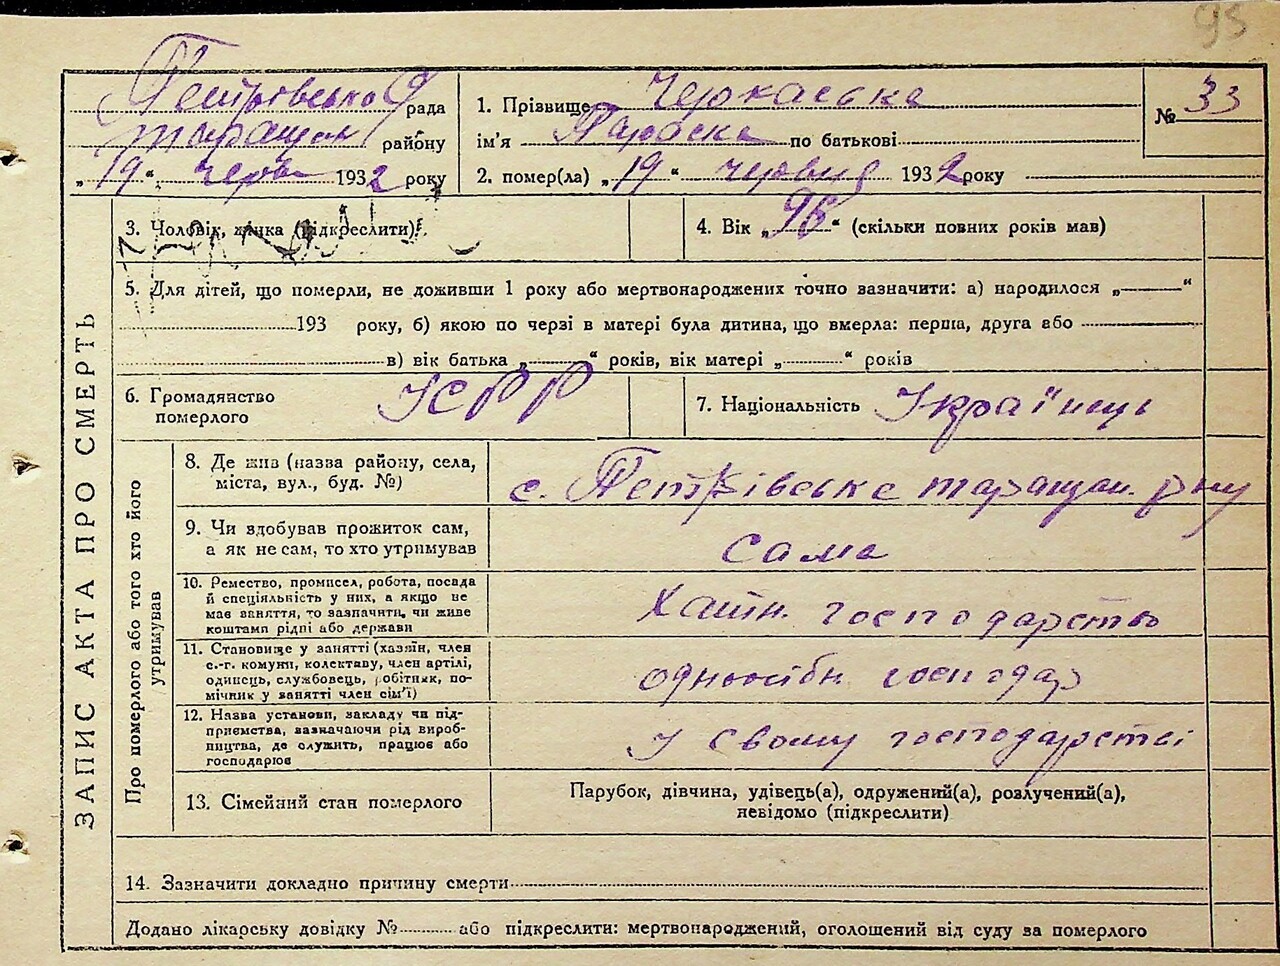 95
Петрівська рада
таращан району
„19“ черв 1932 року
1. Прізвище Черкаська
ім'я Параска по батькові
2. помер(ла) „19“ червня 1932 року
№ 33
3. Чоловік, жінка (підкреслити)
4. Вік „95“ (скільки повних років мав)
5. Для дітей, що померли, не доживши 1 року або мертвонароджених точно зазначити: а) народилося „ “
193 року, б) якою по черзі в матері була дитина, що вмерла: перша, друга або
в) вік батька „ “ років, вік матері „ “ років
6. Громадянство
померлого
УСРР
7. Національність Українець
ЗАПИС АКТА ПРО СМЕРТЬ
Про померлого або того хто його
утримував
8. Де жив (назва району, села,
міста, вул., буд. №)
с. Петрівське таращан. р-ну
9. Чи здобував прожиток сам,
а як не сам, то хто утримував
сама
10. Ремество, промисел, робота, посада
й спеціяльність у них, а якщо не
має заняття, то зазначити, чи живе
коштами рідні або держави
Хатн. господарство
11. Становище у занятті (хазяїн, член
с.-г. комуни, колективу, член артілі,
одинець, службовець, робітник, по-
мічник у занятті член сім'ї)
одноосібн. господар
12. Назва установи, закладу чи під-
приємства, зазначаючи рід вироб-
ництва, де служить, працює або
господарює
У свому господарстві
13. Сімейний стан померлого
Парубок, дівчина, удівець(а), одружений(а), розлучений(а),
невідомо (підкреслити)
14. Зазначити докладно причину смерти
Додано лікарську довідку № або підкреслити: мертвонароджений, оголошений від суду за померлого